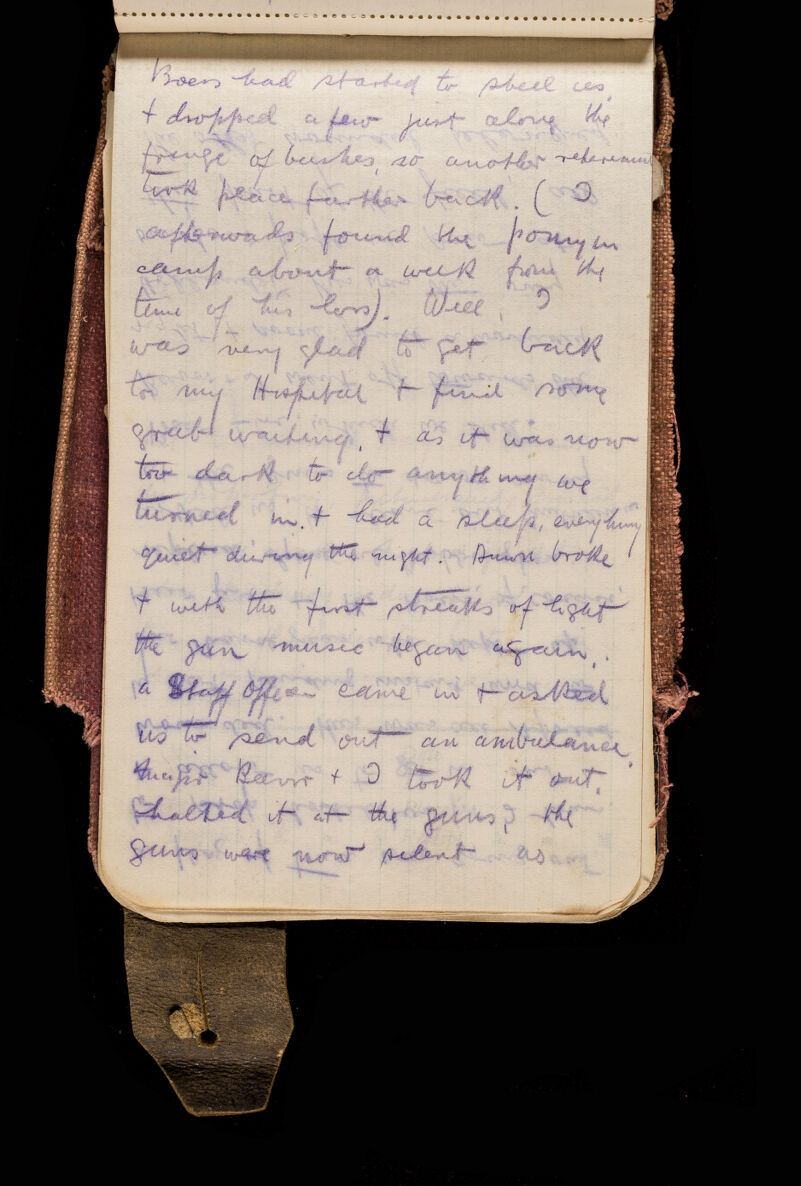 Boers had started to shell us,
+ dropped a few just along the
fringe of bushes, so another retirement
took place farther back. ( I
afterwads found the pony in
camp about a week from the
time of his loss). Well, I
was very glad to get back
to my Hospital + find some
grub waiting, + as it was now
too dark to do anything we
turned in. + had a sleep, everything
quiet during the night. Dawn broke
+ with the first streaks of light
the gun music began again,.
a Staff Officer came in + asked
us to send out an ambulance,
Major + I took it out,
halted it at the guns, the
guns were now silent as